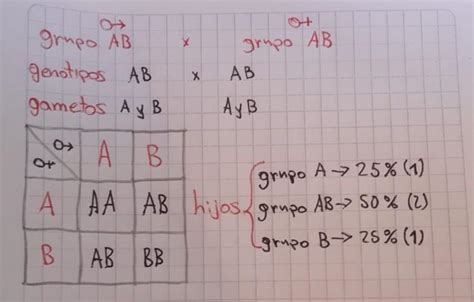 grupo AB x grupo AB
genotipos AB x AB
gametos A y B A y B
A B
A AA AB
B AB BB
hijos
grupo A → 25% (1)
grupo AB → 50% (2)
grupo B → 25% (1)